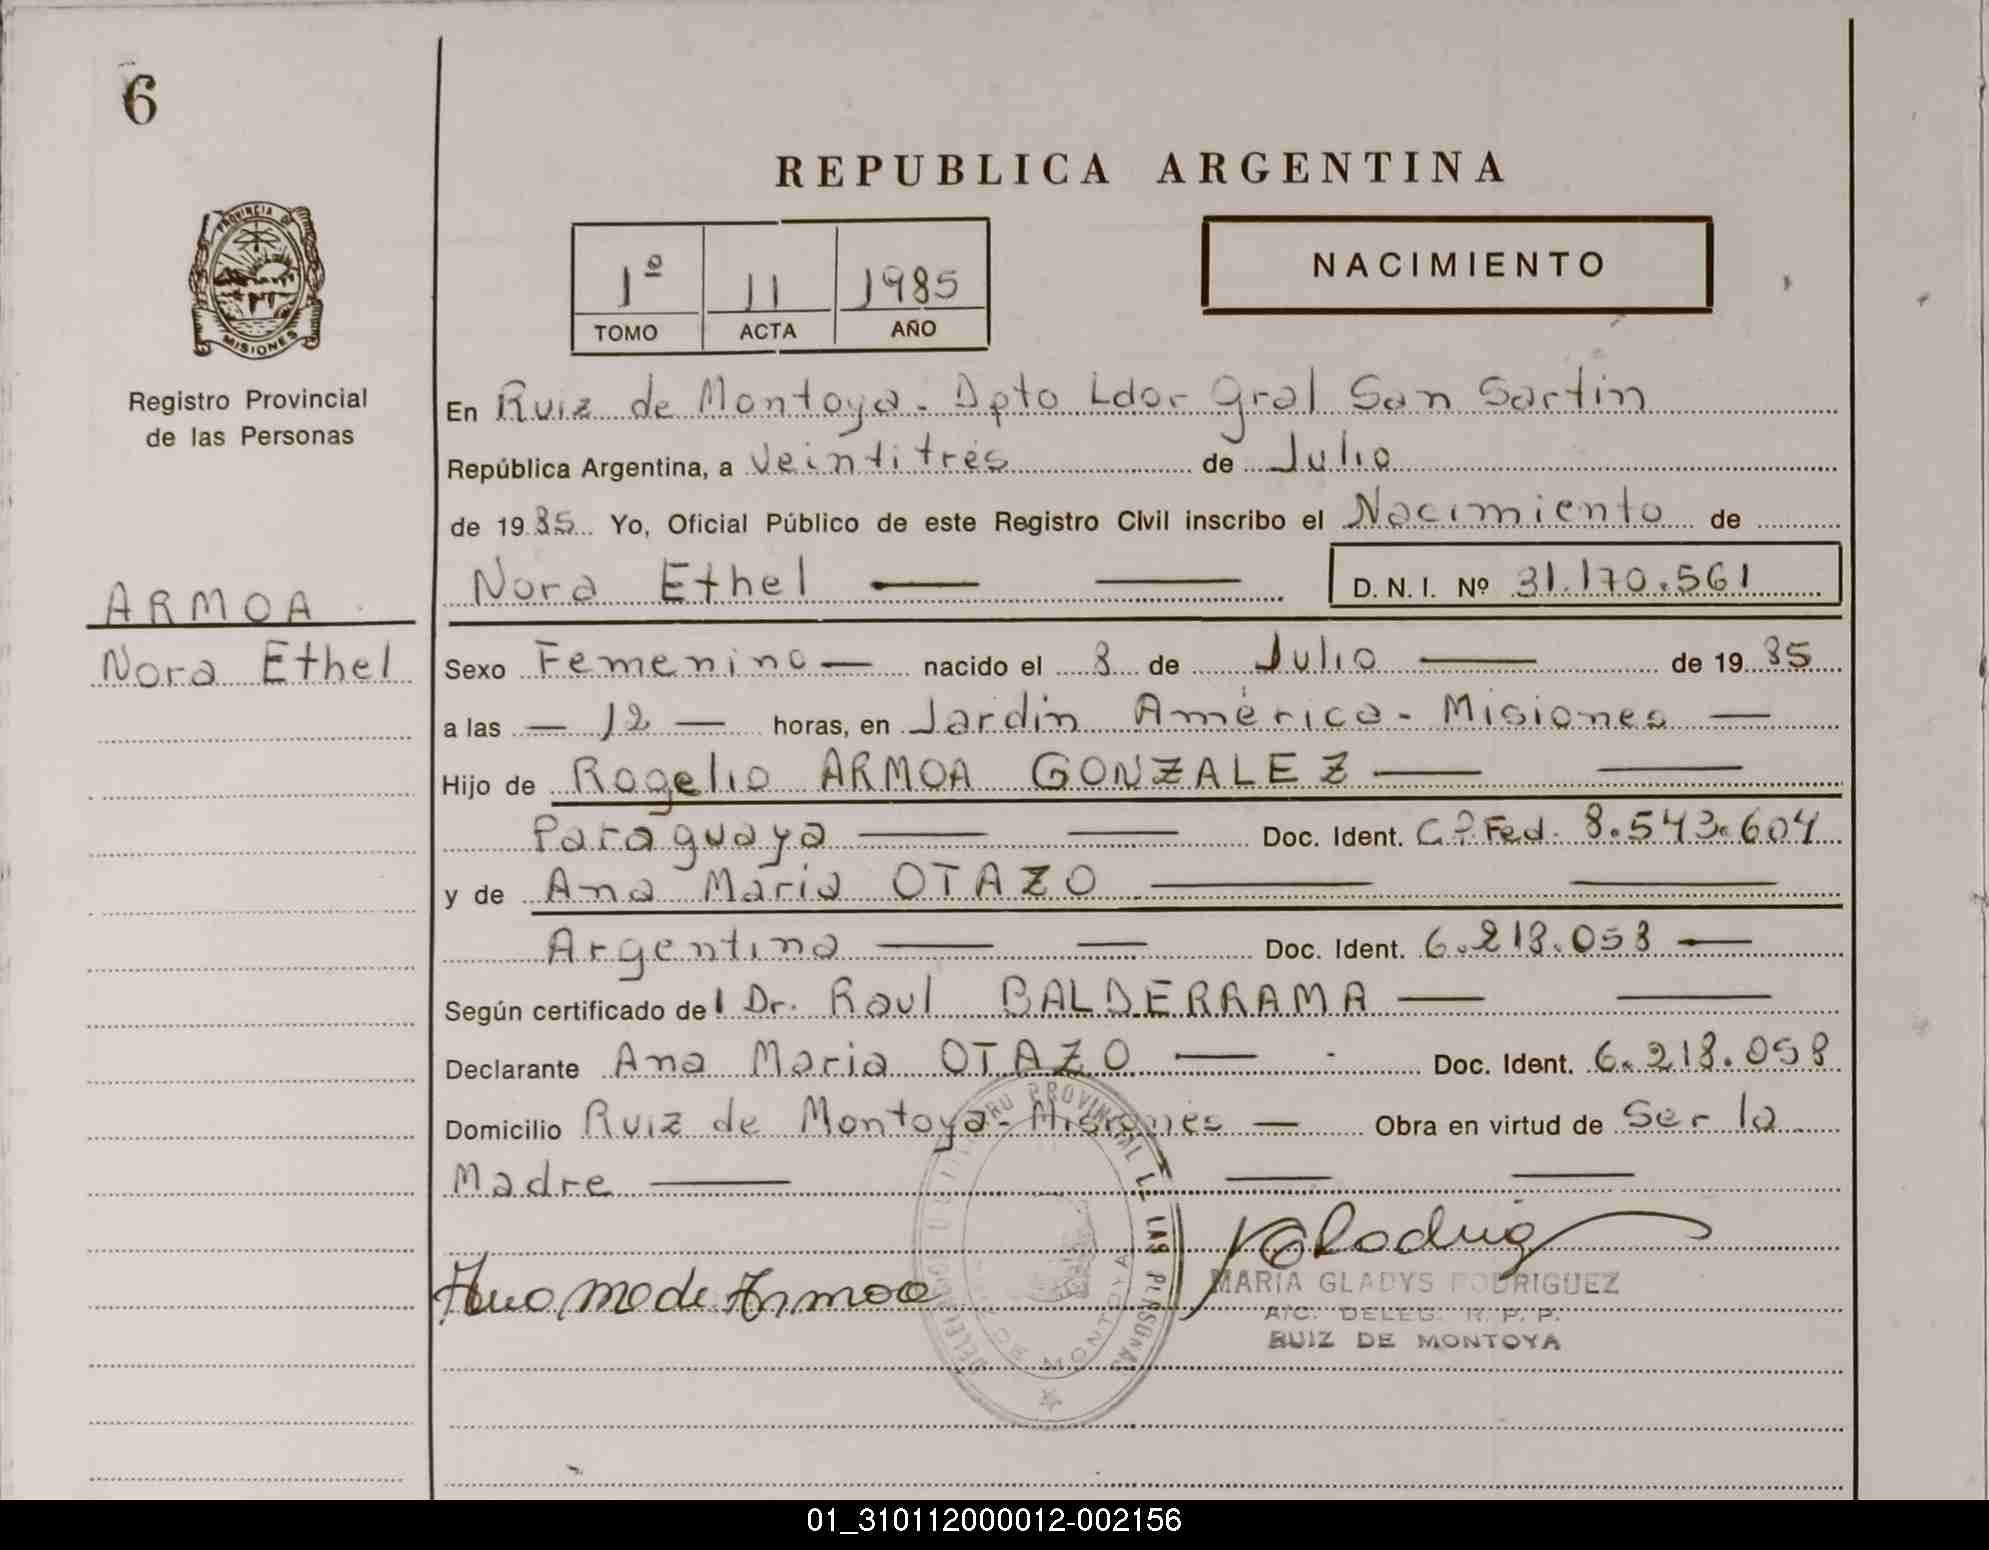 6
REPUBLICA ARGENTINA
PROVINCIA DE
MISIONES
Registro Provincial
de las Personas
1º 11 1985
TOMO ACTA AÑO
NACIMIENTO
En Ruiz de Montoya - Dpto Ldor Gral San Sartin
República Argentina, a Veintitrés de Julio
de 1985 Yo, Oficial Público de este Registro Civil inscribo el Nacimiento de
Nora Ethel D. N. I. Nº 31.170.561
ARMOA
Nora Ethel
Sexo Femenino nacido el 8 de Julio de 1985
a las 12 horas, en Jardín América - Misiones
Hijo de Rogelio ARMOA GONZALEZ
Paraguaya Doc. Ident. C.P. Fed. 8.543.604
y de Ana Maria OTAZO
Argentina Doc. Ident. 6.218.058
Según certificado del Dr. Raul BALDERRAMA
Declarante Ana Maria OTAZO Doc. Ident. 6.218.058
Domicilio Ruiz de Montoya - Misiones Obra en virtud de Ser la
Madre
de Armoa
MARIA GLADYS RODRIGUEZ
A/C. DELEG. R. P. P.
RUIZ DE MONTOYA
01_310112000012-002156